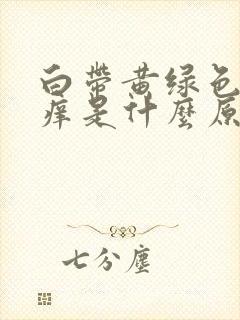 白带黄绿色
痒是什麼原
七分尘